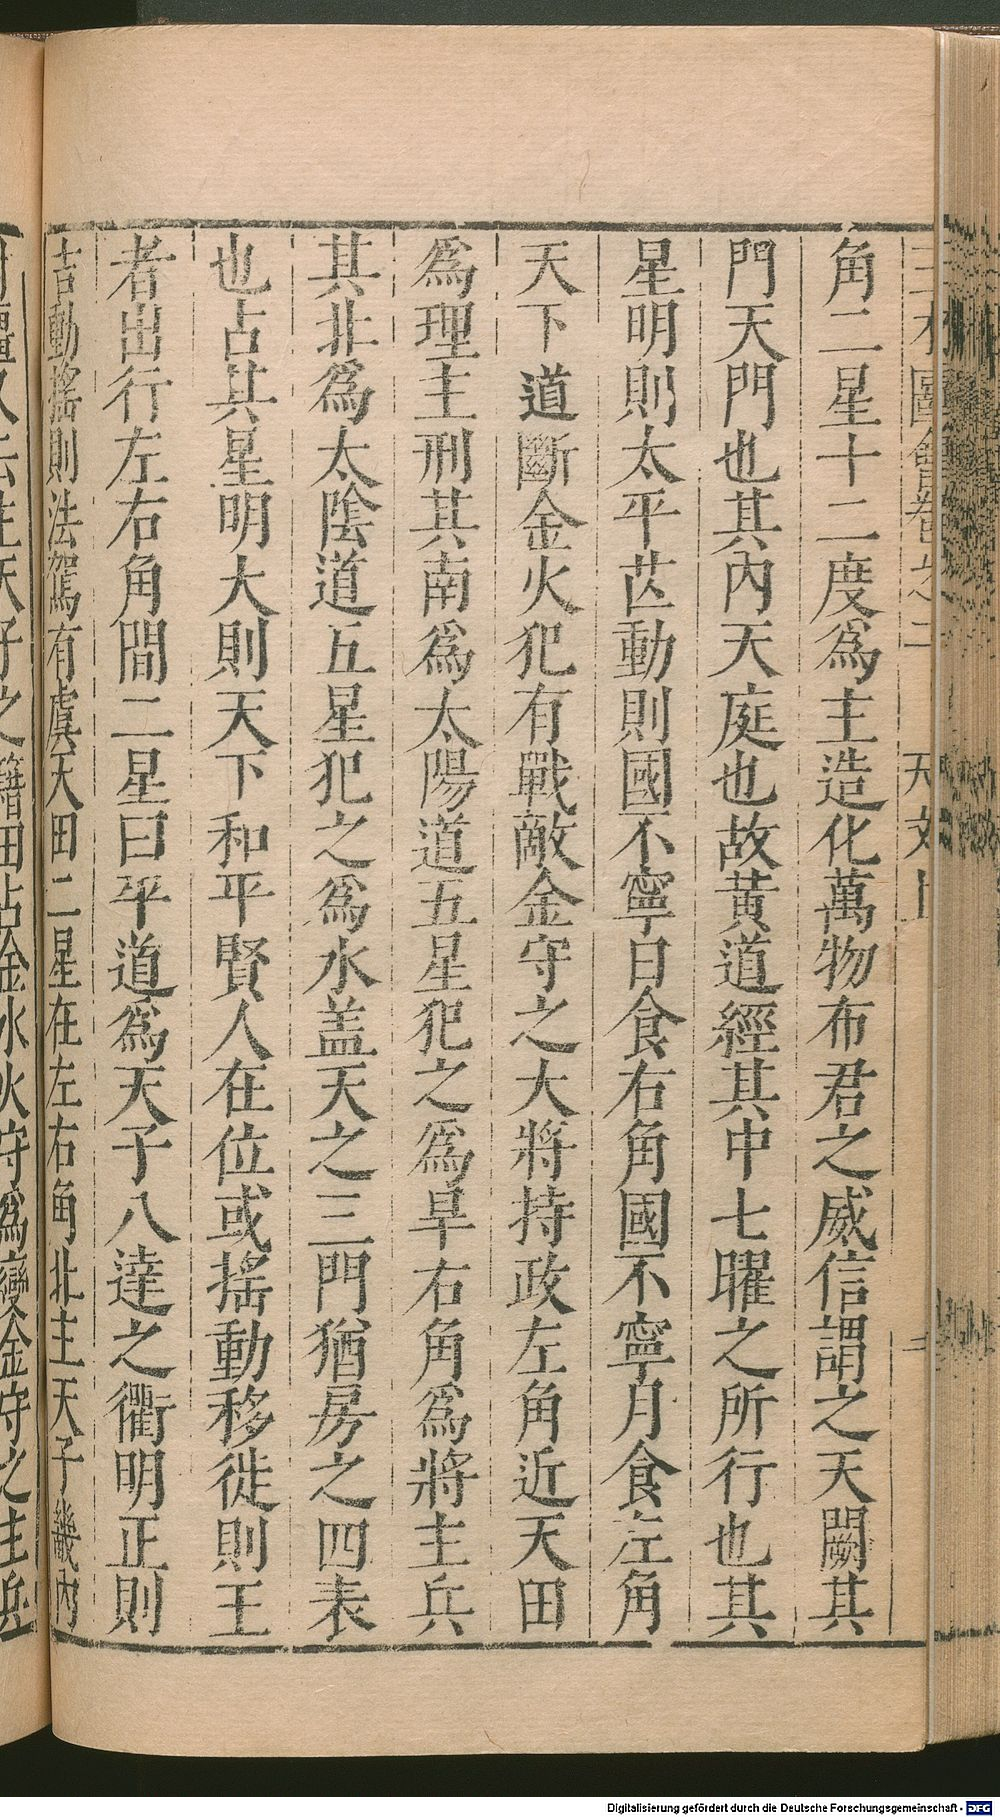 角二星十二度為主造化萬物布君之威信謂之天闕其
門天門也其內天庭也故黃道經其中七曜之所行也其
星明則太平芒動則國不寧日食右角國不寧月食左角
天下道斷金火犯有戰敵金守之大將持政左角近天田
為理主刑其南為太陽道五星犯之為旱右角為將主兵
其北為太陰道五星犯之為水盖天之三門猶房之四表
也占其星明大則天下和平賢人在位或搖動移徙則王
者出行左右角間二星曰平道為天子八達之衢明正則
吉動搖則法駕有虞天田二星在左右角北主天子畿內
三才圖會卷之二 天文 二
封疆又云主天子之籍田占金水火守為變金守之主兵
Digitalisierung gefördert durch die Deutsche Forschungsgemeinschaft - DFG